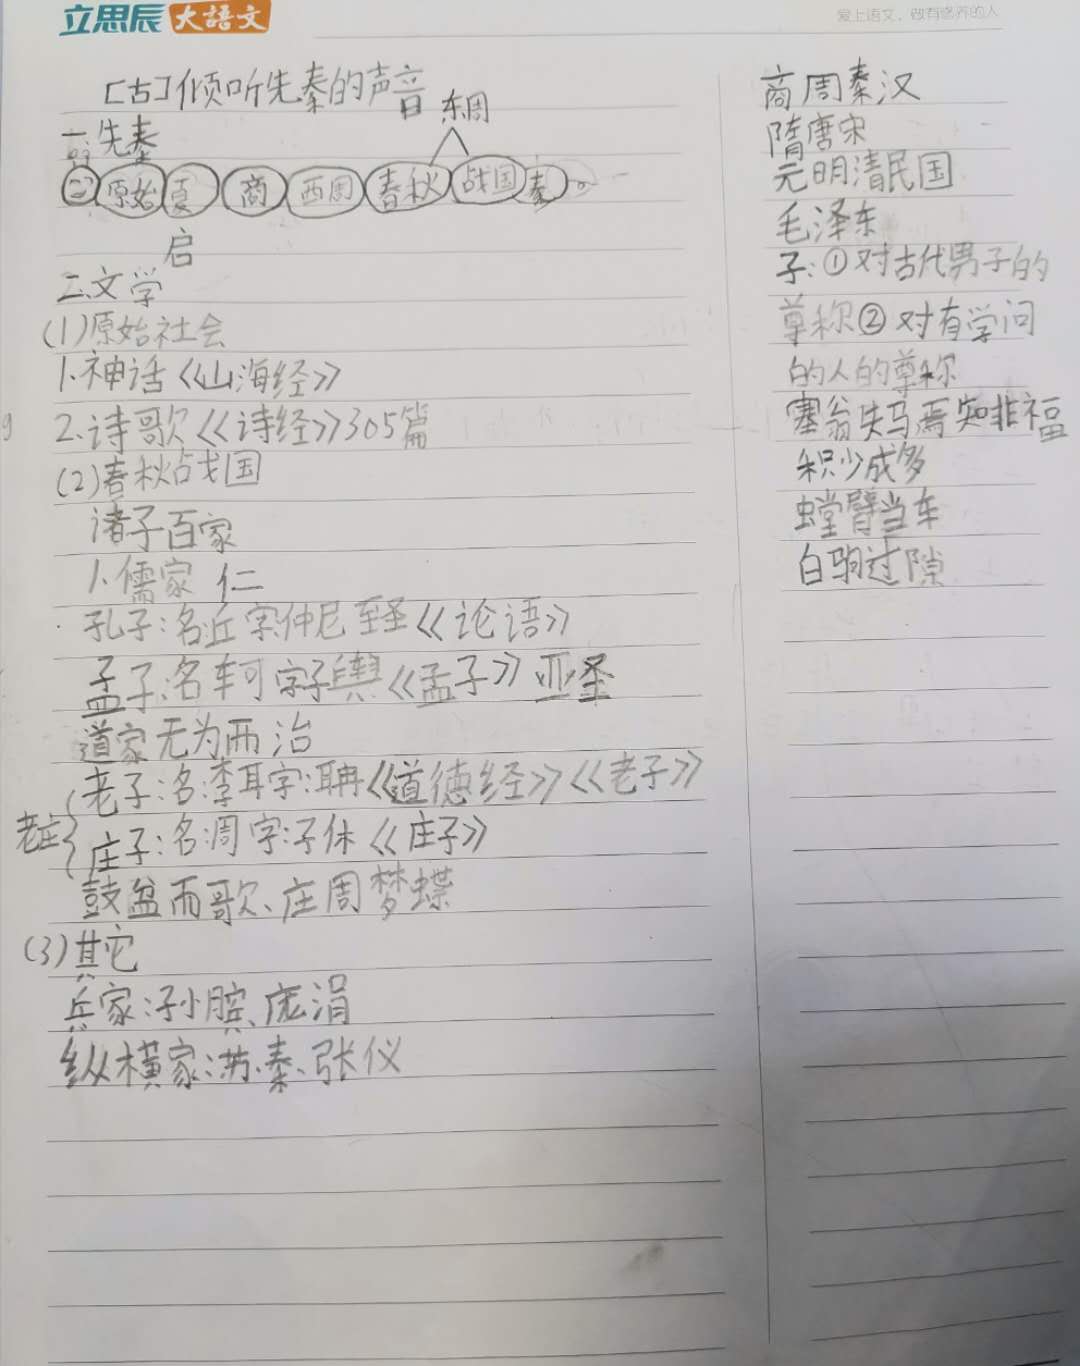 立思辰大語文
爱上语文，做有修养的人
[古]倾听先秦的声音
东周
一.先秦
原始 夏 商 西周 春秋 战国 秦
启
二.文学
(1)原始社会
1.神话《山海经》
2.诗歌《诗经》305篇
(2)春秋战国
诸子百家
1.儒家 仁
孔子:名丘字仲尼 至圣《论语》
孟子:名轲 字子舆《孟子》亚圣
道家 无为而治
老子:名:李耳字:聃《道德经》《老子》
老庄
庄子:名:周 字:子休《庄子》
鼓盆而歌、庄周梦蝶
(3)其它
兵家:孙膑、庞涓
纵横家:苏秦、张仪
商周秦汉
隋唐宋
元明清民国
毛泽东
子:①对古代男子的
尊称②对有学问
的人的尊称
塞翁失马焉知非福
积少成多
螳臂当车
白驹过隙